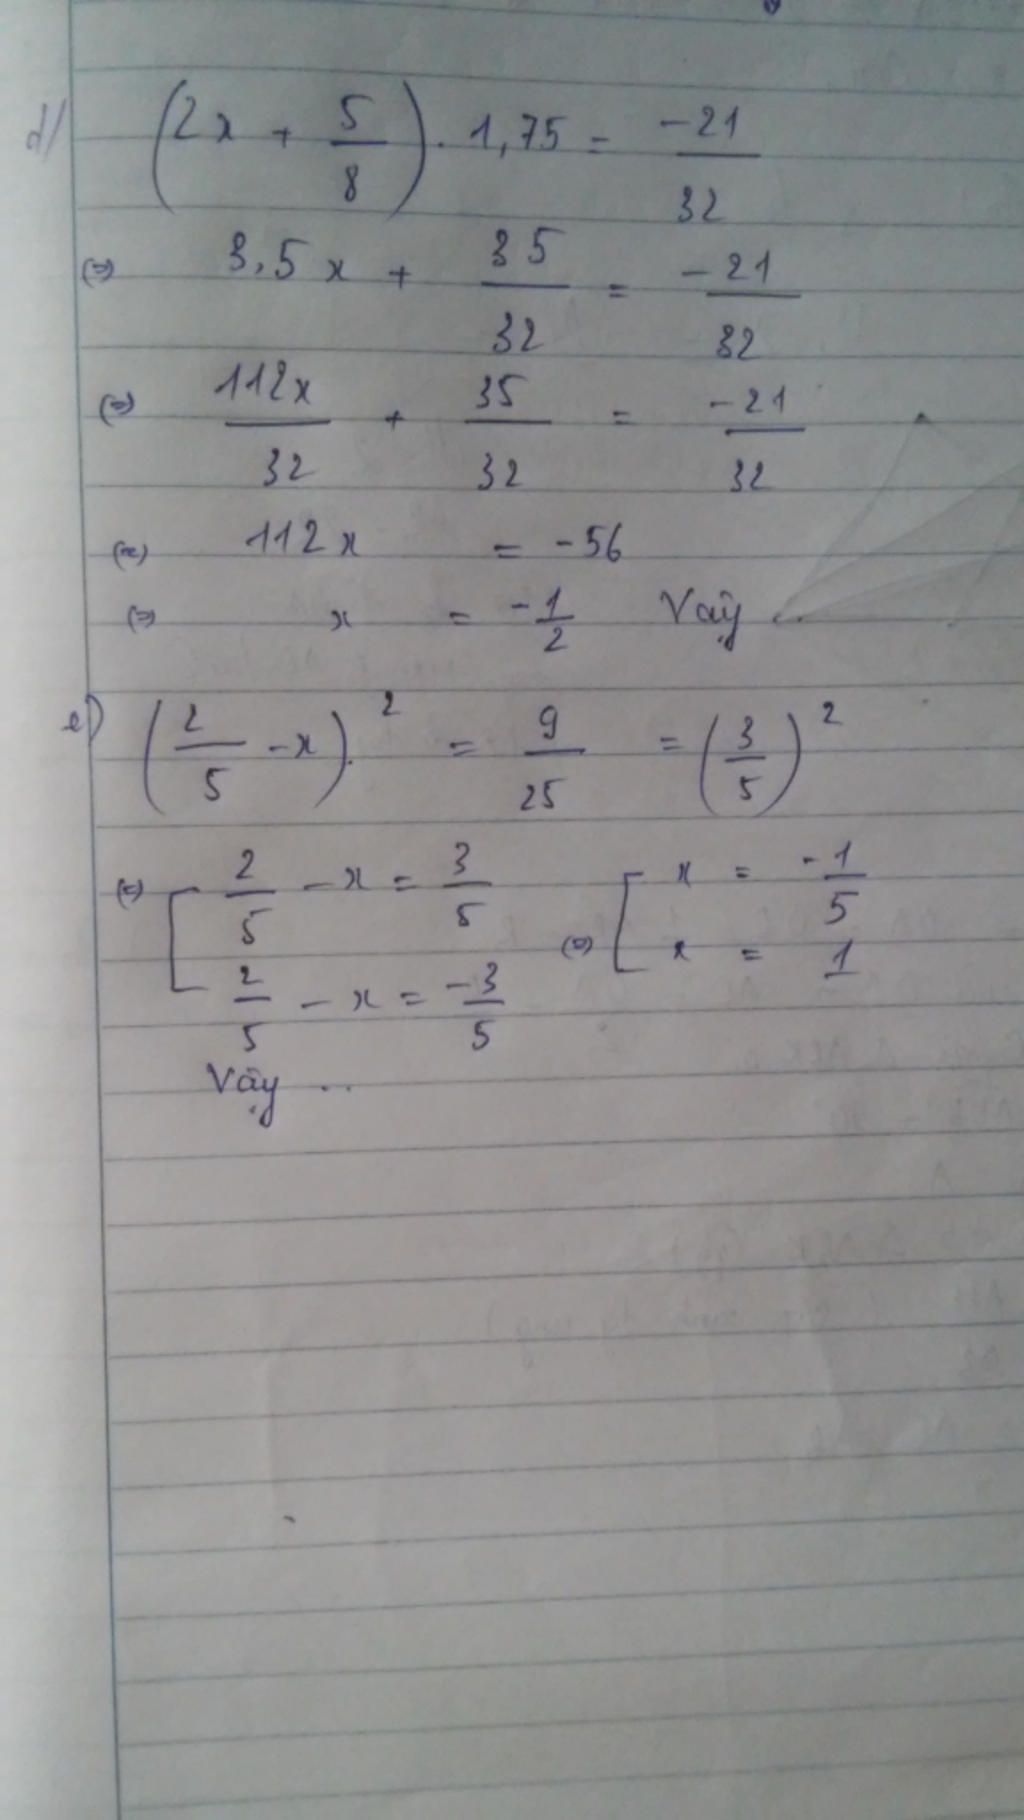 d/ (2x + 5/8) . 1,75 = -21/32
(=) 3,5x + 35/32 = -21/32
(=) 112x/32 + 35/32 = -21/32
(=) 112x = -56
(=) x = -1/2 Vậy ...
e) (2/5 - x)² = 9/25 = (3/5)²
(=) [ 2/5 - x = 3/5 (=) [ x = -1/5
2/5 - x = -3/5 x = 1
Vậy ...